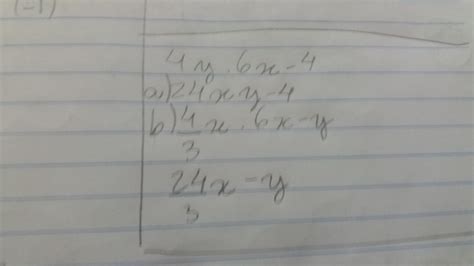 (-1)
4y . 6x - 4
a) 24xy - 4
b) 4/3 x . 6x - y
24/3 x - y